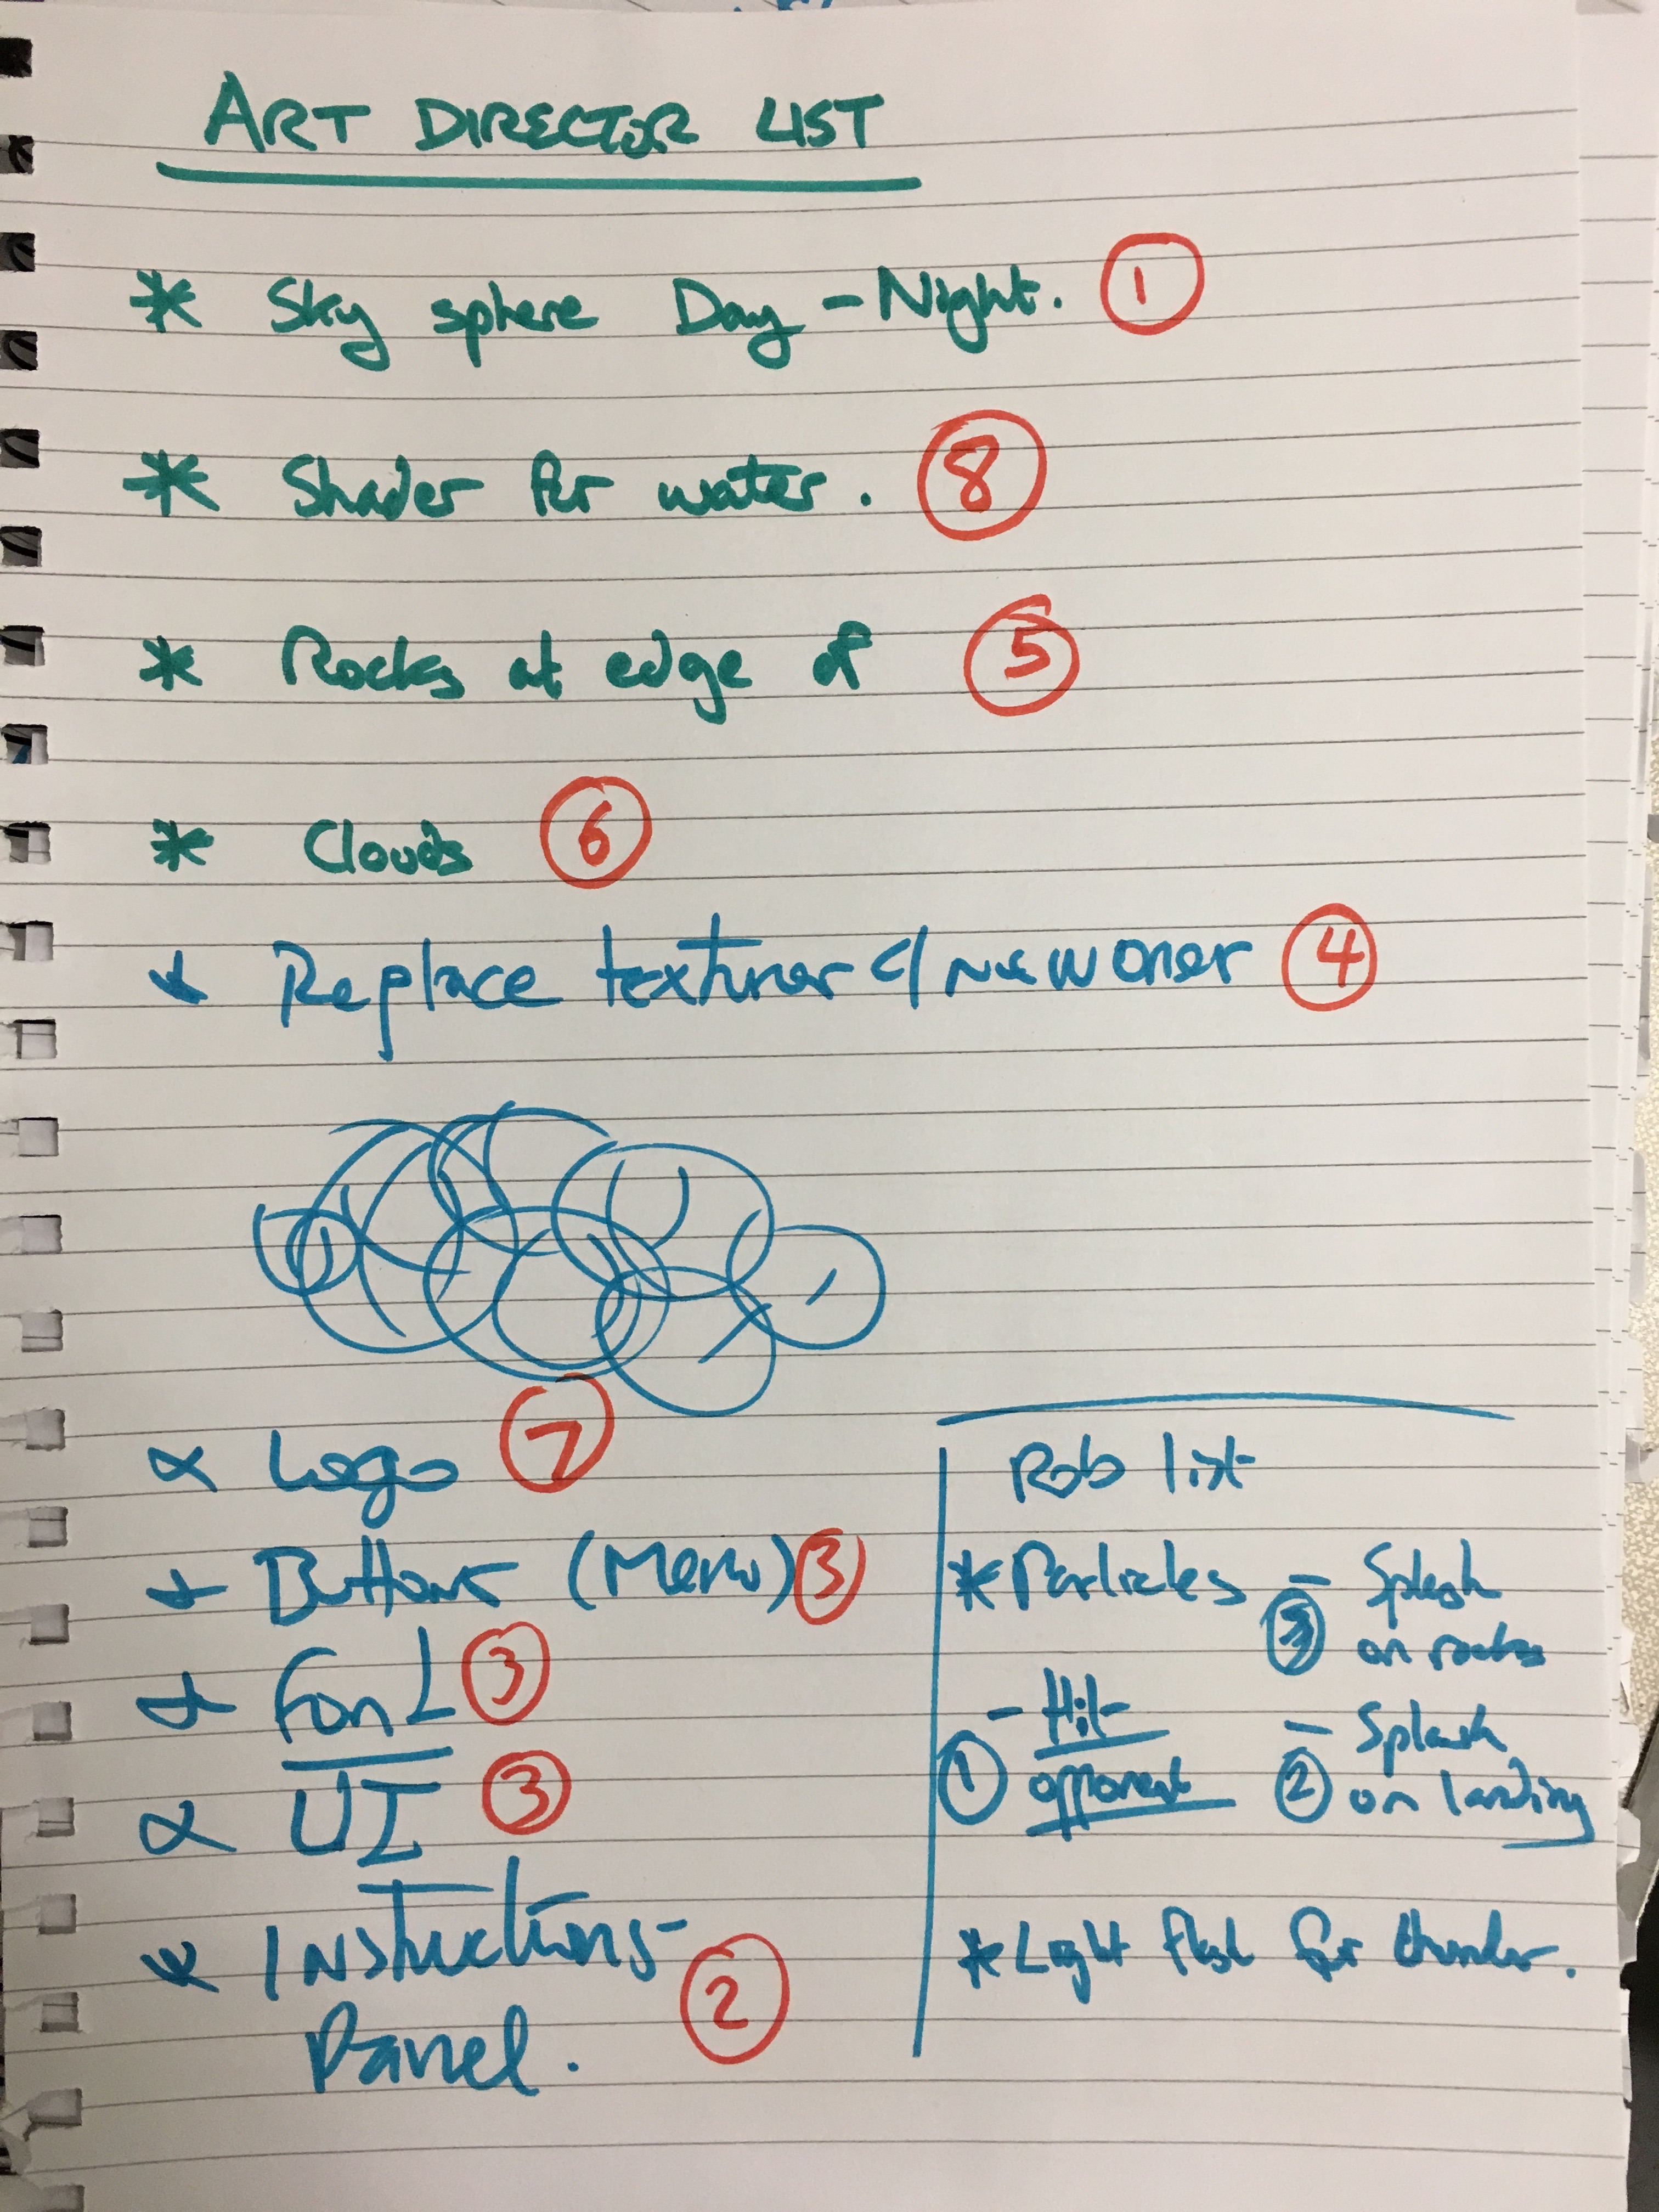 ART DIRECTOR LIST
* Sky sphere Day - Night. 1
* Shader for water. 8
* Rocks at edge of 5
* Clouds 6
* Replace textures c/ new ones 4
* Logo 7
* Buttons (Menu) 3
* Font 3
* UI 3
* Instuctions
Panel. 2
Rob list
* Particles - Splash
3 on rocks
- Hit
1 opponent
- Splash
2 on landing
* Light flash for thunder.